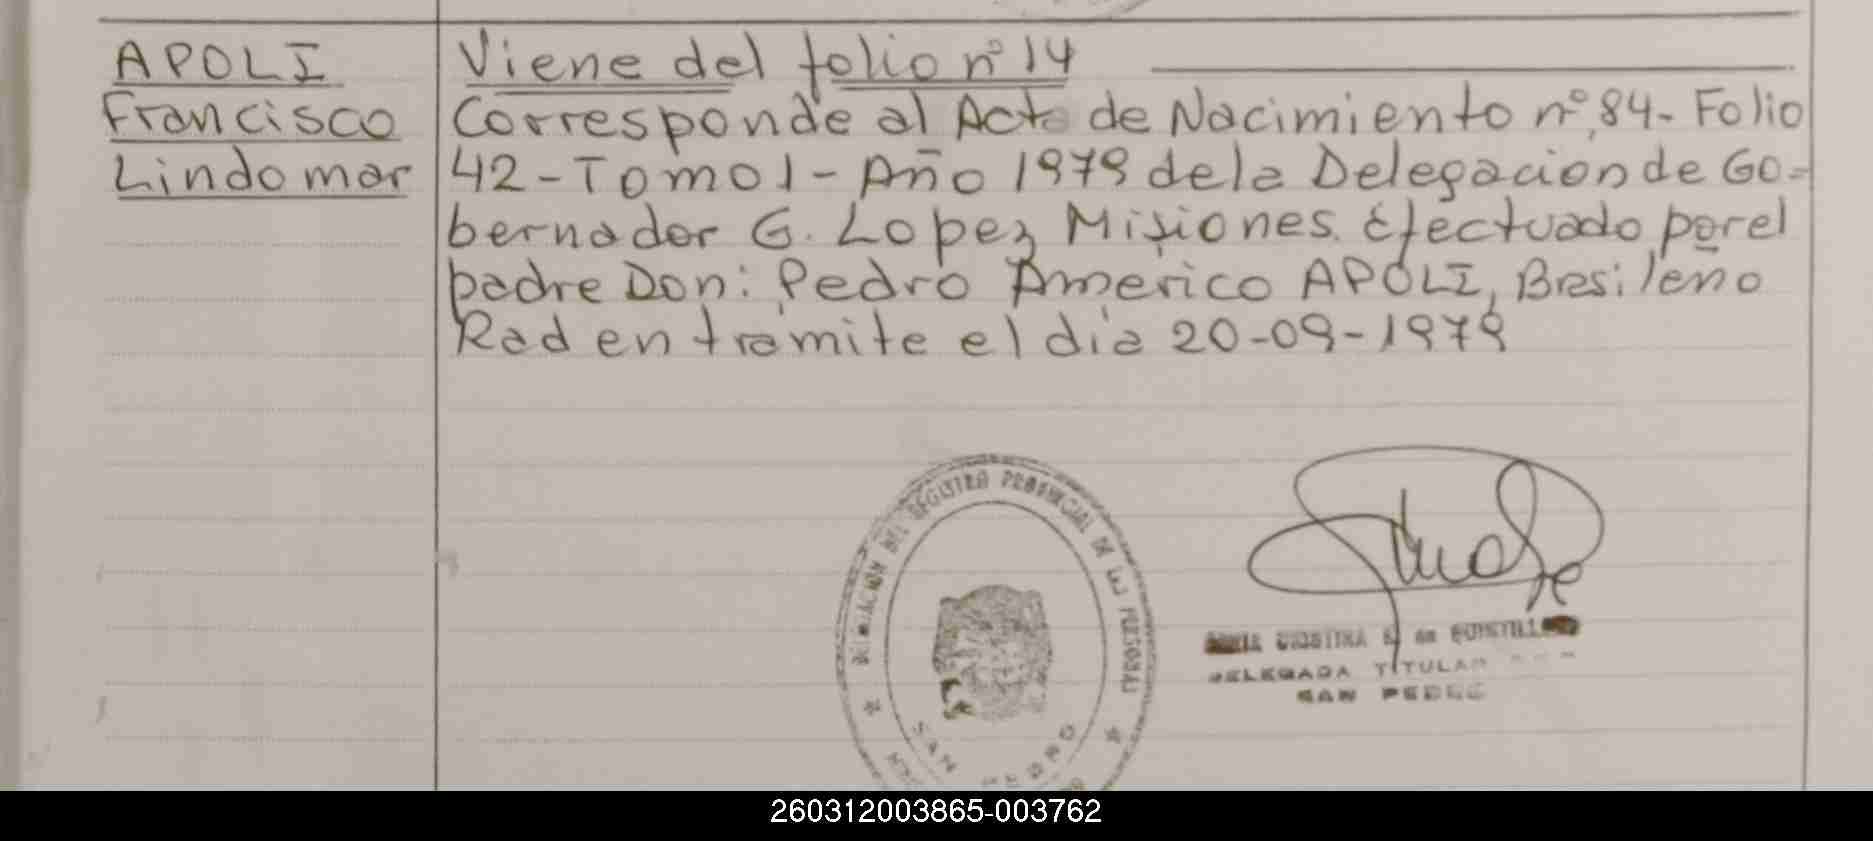 APOLI
Francisco
Lindomar
Viene del folio nº 14
Corresponde al Acta de Nacimiento nº 84- Folio
42-Tomo 1- Año 1979 de la Delegacion de Go-
bernador G. Lopez Misiones. Efectuado por el
padre Don: Pedro Americo APOLI, Brasileño
Rad en tramite el dia 20-09-1979
DELEGACION DEL REGISTRO PROVINCIAL DE LAS PERSONAS
SAN PEDRO
DELEGADA TITULAR
SAN PEDRO
260312003865-003762